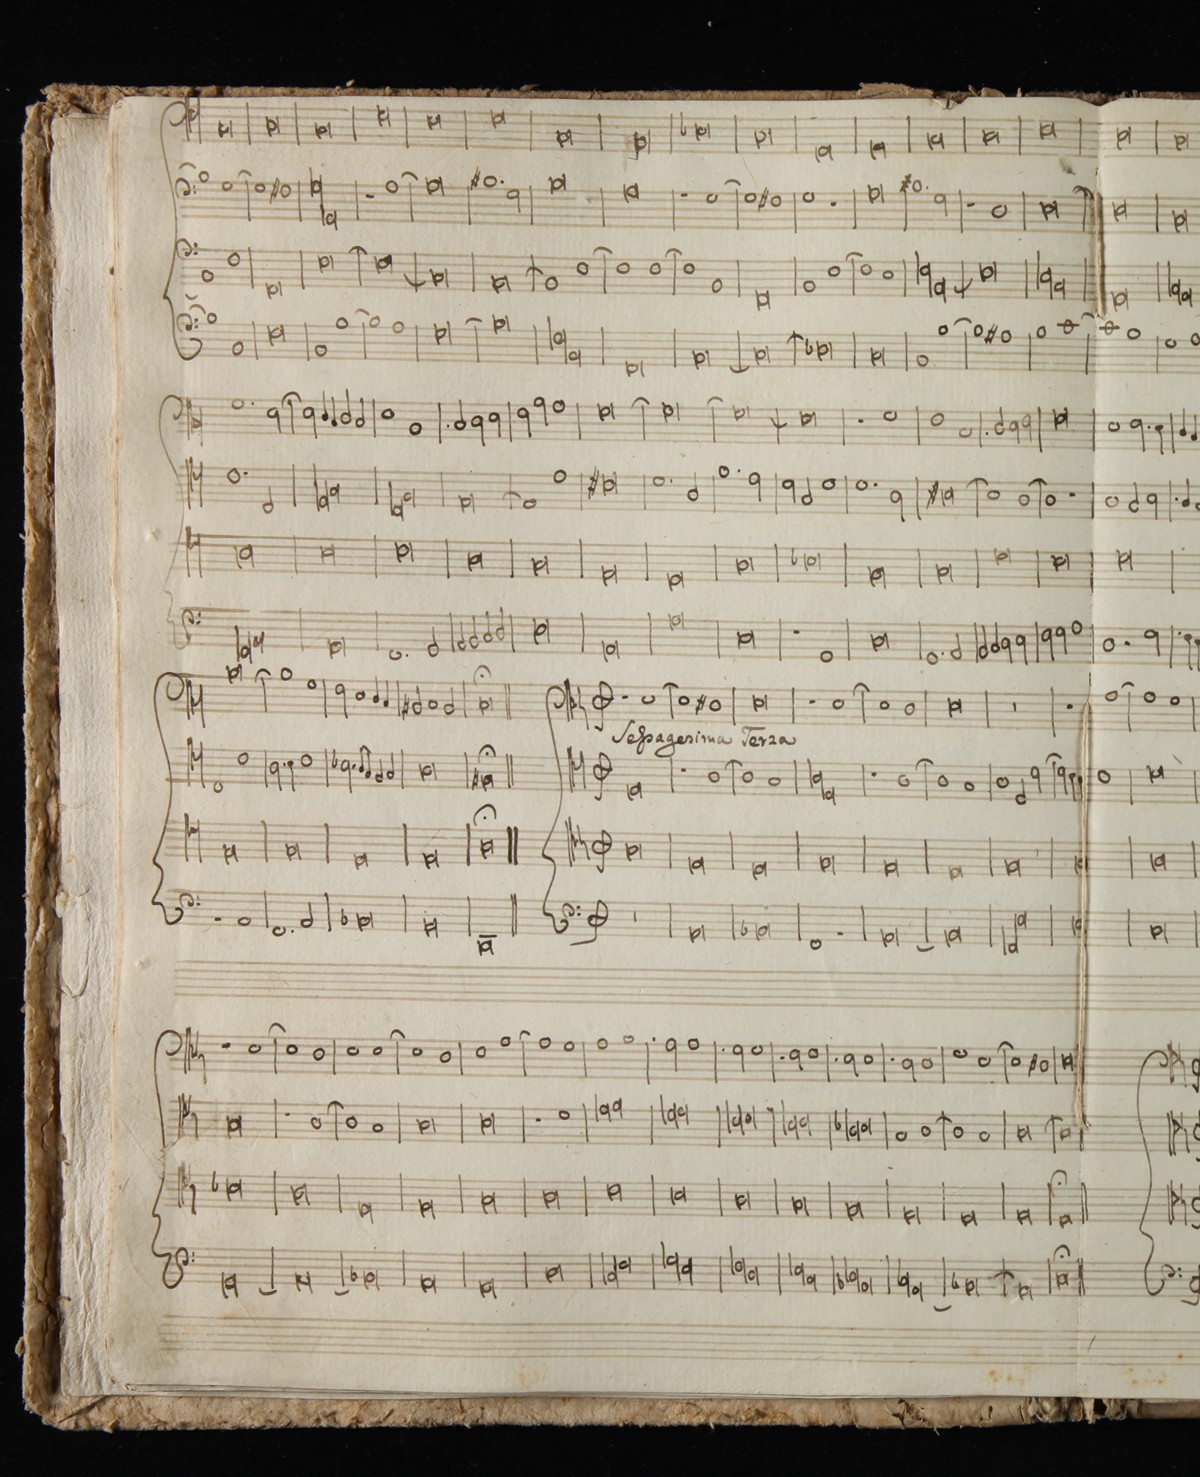 Sessagesima Terza